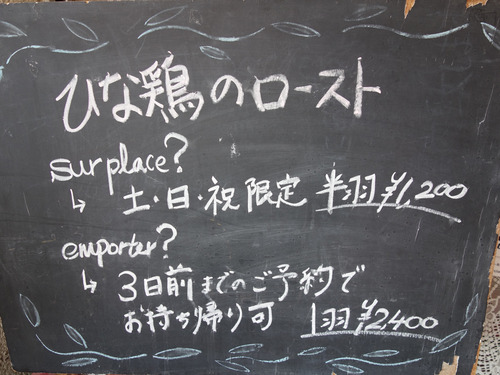 ひな鶏のロースト
sur place?
↳ 土・日・祝限定 半羽¥1,200
emporter?
↳ 3日前までのご予約で
お持ち帰り可 1羽¥2400